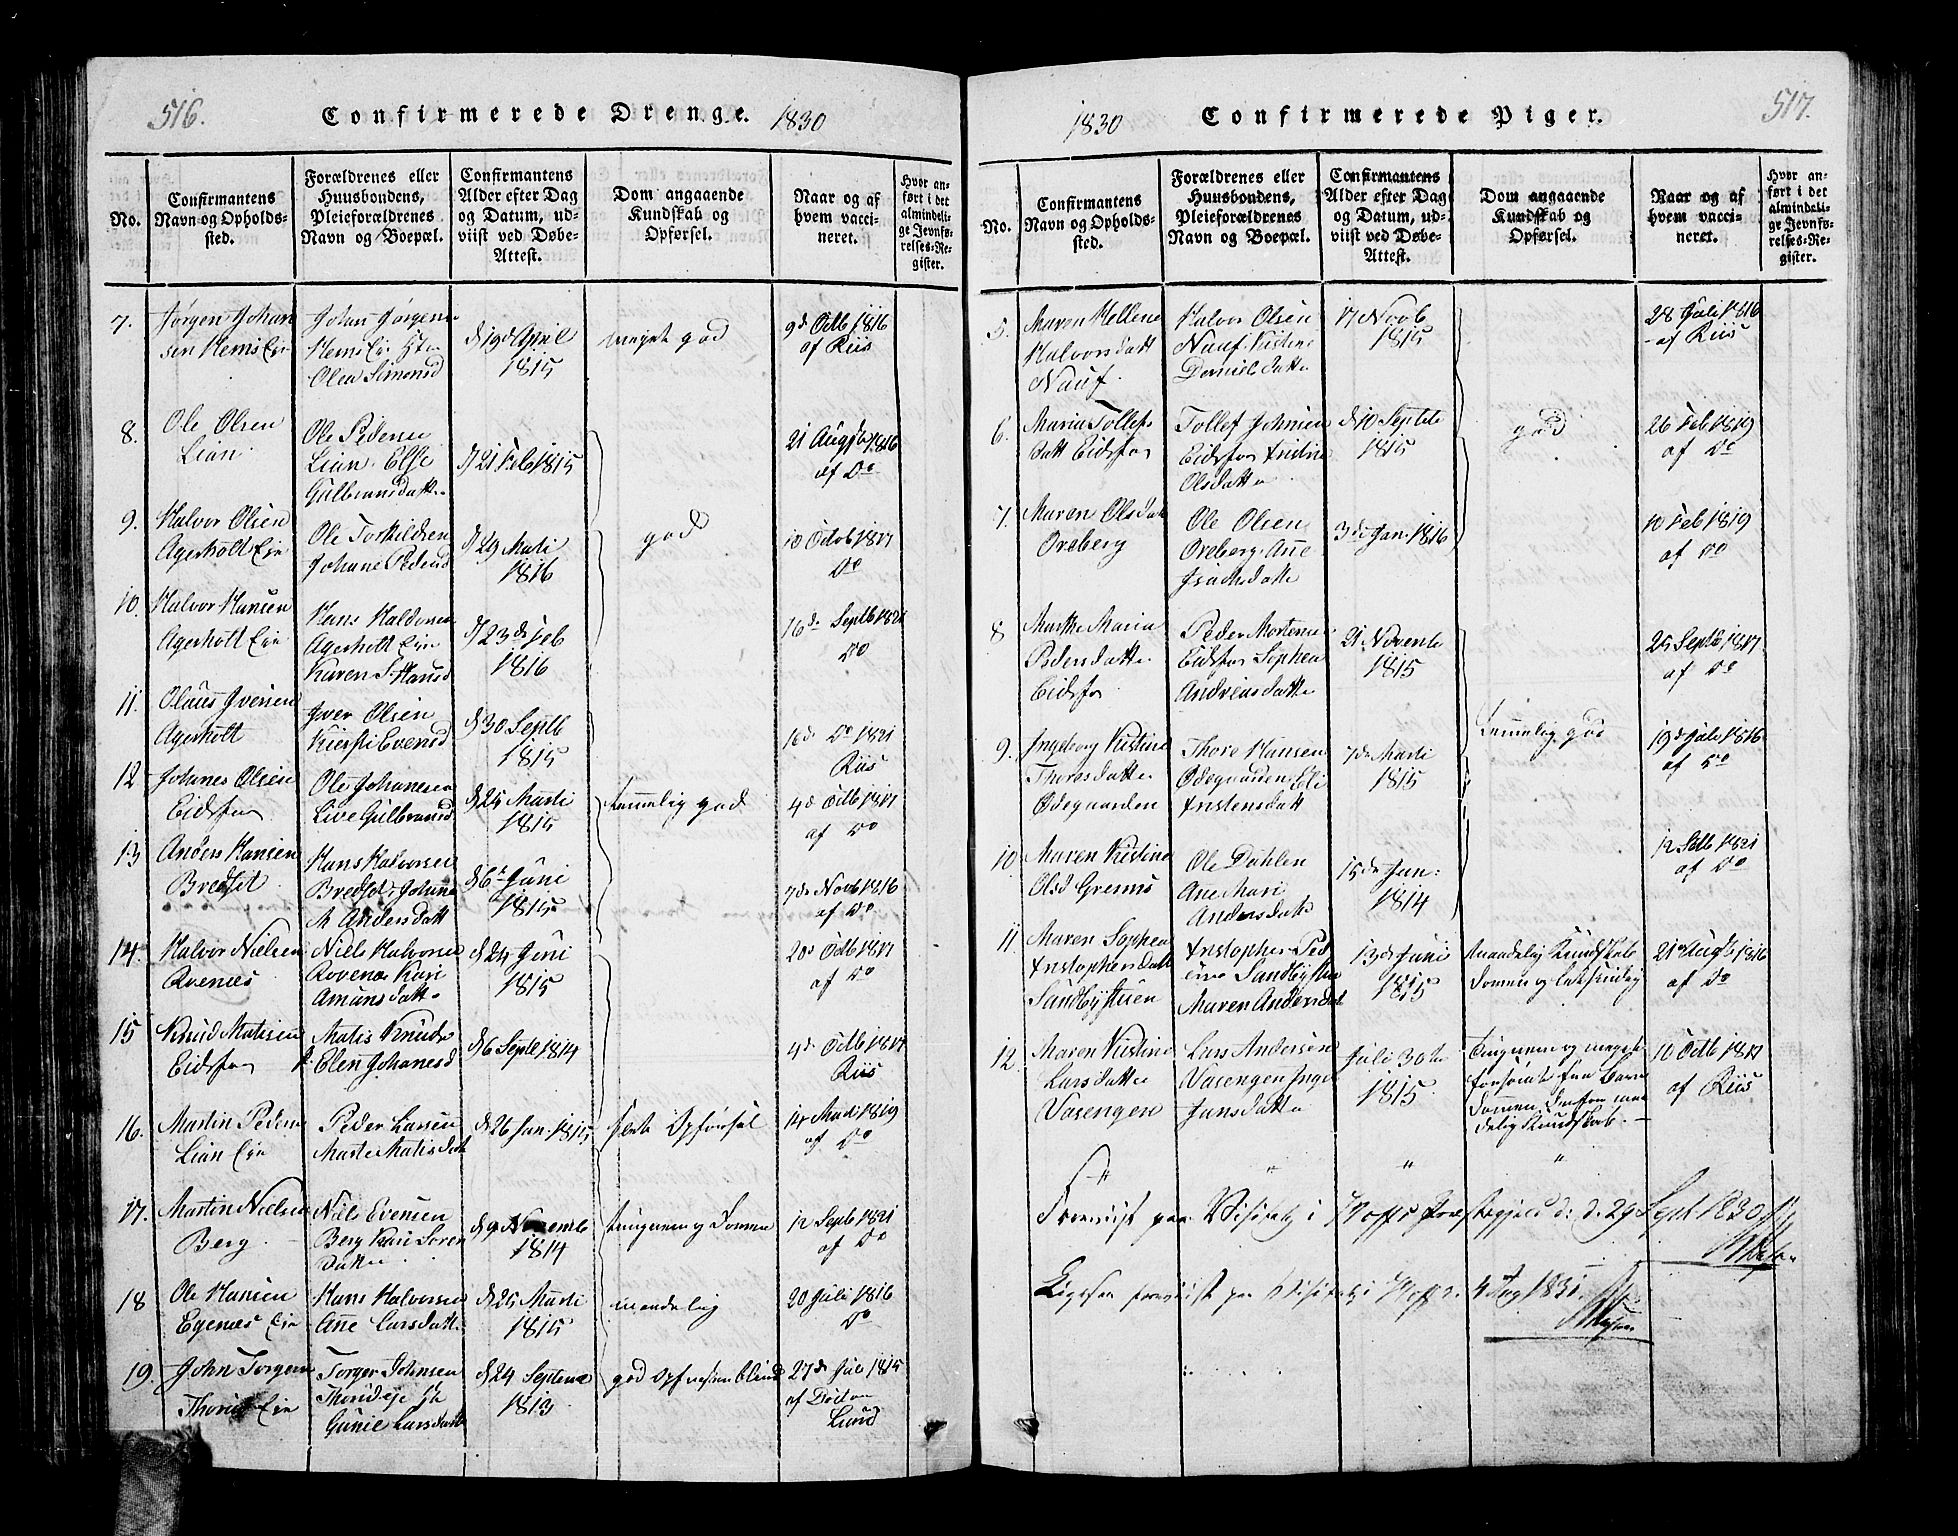 516.
Confirmerede Drenge. 1830
No.
Confirmantens
Navn og Opholds-
sted.
Forældrenes eller
Huusbondens,
Pleieforældrenes
Navn og Boepæl.
Confirmantens
Alder efter Dag
og Datum, ud-
viist ved Døbe-
Attest.
Dom angaaende
Kundskab og
Opførsel.
Naar og af
hvem vacci-
neret.
Hvor an-
ført i det
almindeli-
ge Jevnfø-
relses-Re-
gister.
7.
Jørgen Johan
sen Hems Eie
Johan Jørgens
Hems Eie
Olea Simensd
d 19de April
1815
meget god
9de Octb 1816
af Riis
8.
Ole Olsen
Lian
Ole Pedersen
Lian Else
Gulbransdatt.
d 21 Feb 1815
21 Augst 1816
af Do
9.
Halvor Olsen
Agerholt Eie
Ole Torkildsen
Johane Pedersd
d 29 Marti
1816
god
10 Octob 1817
Do
10.
Halvor Hansen
Agerholt Eie
Hans Haldorsen
Agerholt Eie
Karen S. Hansd
d 23de Feb
1816
16de Septb 1821
Do
11.
Olaus Iversen
Agerholt
Iver Olsen
Kiersti Evensd
d 30 Septb
1815
16de Do 1821
Riis
12
Johanes Olsen
Eidsfos
Ole Johanesen
Live Gulbransd
d 25 Marti
1815
temmelig god
4de Octb 1817
af Do
13
Anders Hansen
Bredset
Hans Halvorsen
Bredset Johana
M. Andersdatt
d 6te Juni
1815
7de Novb 1816
af Do
14.
Halvor Nielsen
Rvenæs
Niels Halvorsen
Rovenæs Kari
Amunsdatt.
d 24 Juni
1815
20de Octb 1817
af Do
15
Knud Matisen
Eidsfos
Matis Knuds
Elen Johanesd
d 6 Septb 1814
4de Octb 1817
Riis
16.
Martin Peders
Lian Eie
Peder Larsen
Marte Matisdatt
d 26 Jan. 1815
slete Opførsel
14 Marti 1819
af Do
17.
Martin Nielsen
Berg
Niels Evensen
Berg Kari Soren
datter
d 9 Novemb
1814
12 Septb 1821
af Do
18
Ole Hansen
Egenæs Eie
Hans Halvorsen
Ane Larsdatt.
d 25 Marti
1815
maadelig
20 Juli 1816
Do
19.
John Torgers
Thorud Eie
Torger Johnsen
Gunie Larsdatt
d 24 Septemb
1813
27de Juli 1815
af Doctor
Lund
1830 Confirmerede Piger. 517.
No.
Confirmantens
Navn og Opholds-
sted.
Forældrenes eller
Huusbondens,
Pleieforældrenes
Navn og Boepæl.
Confirmantens
Alder efter Dag
og Datum, ud-
viist ved Døbe-
Attest.
Dom angaaende
Kundskab og
Opførsel.
Naar og af
hvem vacci-
neret.
Hvor an-
ført i det
almindeli-
ge Jevnfø-
relses-Re-
gister.
5.
Maren Hellene
Halvorsdatt
Nauf
Halvor Olsen
Nauf Kistine
Danielsdatter
17 Novb
1815
28 Juli 1816
af Riis
6.
Maria Tollefs
datt Eidsfos
Tollef Johnsen
Eidsfos
Olsdatter
d 10 Septb
1815
god
26 Feb 1819
af Do
7.
Maren Olsdatt
Oreberg
Ole Olsen
Oreberg Ane
3de Jan. 1816
10 Feb 1819
af Do
8
Marthe Maria
Pedersdatter
Eidsfos
Peder Mortens
Eidsfos Sophea
Andreasdatter
21 Novemb
1815
25 Septb 1817
af Do
9.
Ingeborg Kistine
Thoresdatter
Ødegaarden
Thore Hansen
Ødegaarden Eli
7de Marti
1815
temmelig god
19de Juli 1816
af Do
10.
Maren Kistine
Olsd Grenns
Ole Dahlen
Ane Mari
Andersdatter
15de Jun:
1814
12 Setb 1821
af Do
11
Maren Sophea
Sandbystuen
Sandbystuen
Maren Andersdat
13de Juni
1815
maadelig Kundskab
21 Augs 1816
af Do
12.
Maren Kistine
Larsdatter
Vasengen
Lars Andersen
Vasengen
Jansdatter
Juli 30te
1815
delig Kundskab.
10 Octb 1817
af Riis
Foreviist paa Visitats i Hoffs Præstegjeld d. 29 Sept 1830
Ligesaa foreviist paa Visitats i Hoff 2. Aug 1831.